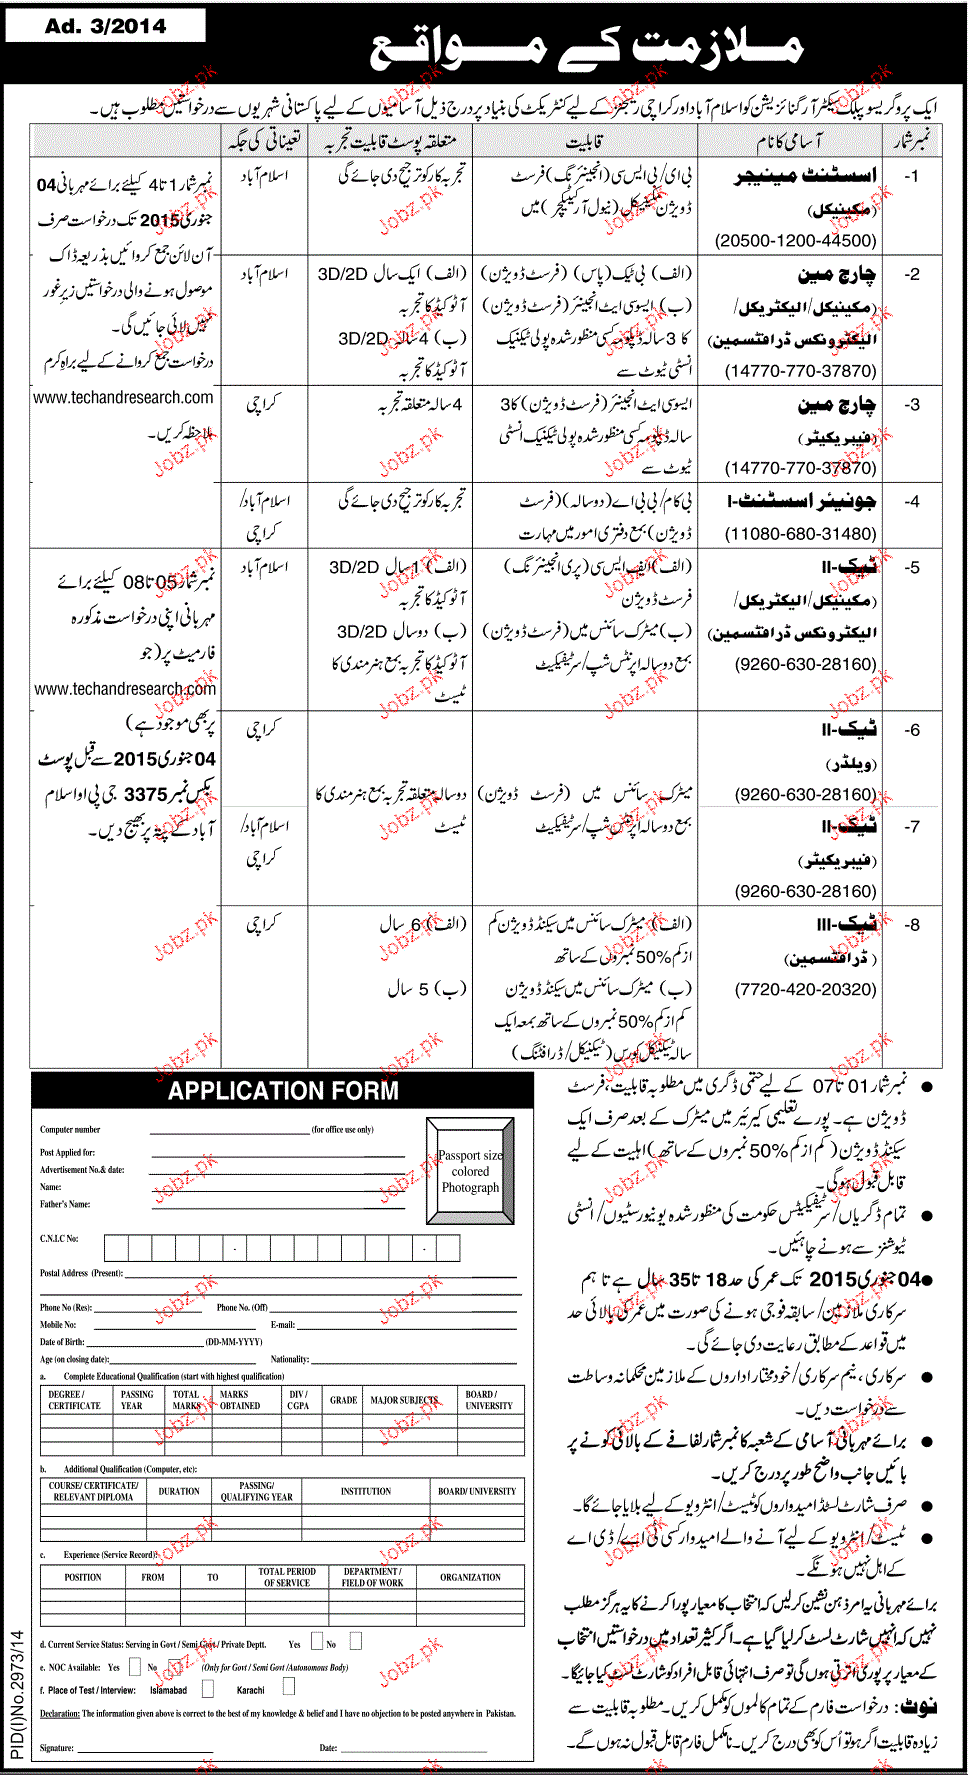 Ad. 3/2014
ملازمت کے مواقع
ایک پروگریسو پبلک سیکٹر آرگنائزیشن کو اسلام آباد اور کراچی ریجنز کے لیے کنٹریکٹ کی بنیاد پر درج ذیل آسامیوں کے لیے پاکستانی شہریوں سے درخواستیں مطلوب ہیں۔
نمبر شمار آسامی کا نام قابلیت متعلقہ پوسٹ قابلیت تجربہ تعیناتی کی جگہ
-1 اسسٹنٹ مینیجر
(مکینیکل)
(20500-1200-44500)
بی ای/ بی ایس سی (انجینئرنگ) فرسٹ
ڈویژن مکینیکل (نیول آرکیٹیکچر) میں
تجربہ کار کو ترجیح دی جائے گی
اسلام آباد
-2 چارج مین
(مکینیکل/ الیکٹریکل/
الیکٹرونکس ڈرافٹسمین)
(14770-770-37870)
(الف) بی ٹیک (پاس) (فرسٹ ڈویژن)
(ب) ایسوسی ایٹ انجینئر (فرسٹ ڈویژن)
کا 3 سالہ ڈپلومہ کسی منظور شدہ پولی ٹیکنیک
انسٹی ٹیوٹ سے
(الف) ایک سال 3D/2D
آٹو کیڈ کا تجربہ
(ب) 4 سال 3D/2D
آٹو کیڈ کا تجربہ
اسلام آباد
-3 چارج مین
(فیبریکیٹر)
(14770-770-37870)
ایسوسی ایٹ انجینئر (فرسٹ ڈویژن) کا 3
سالہ ڈپلومہ کسی منظور شدہ پولی ٹیکنیک انسٹی
ٹیوٹ سے
4 سالہ متعلقہ تجربہ
کراچی
-4 جونیئر اسسٹنٹ-I
(11080-680-31480)
بی کام/ بی بی اے (دو سالہ) (فرسٹ
ڈویژن) بمع دفتری امور میں مہارت
تجربہ کار کو ترجیح دی جائے گی
اسلام آباد/
کراچی
نمبر شمار 1 تا 4 کیلئے برائے مہربانی 04
جنوری 2015 تک درخواست صرف
آن لائن جمع کروائیں بذریعہ ڈاک
موصول ہونے والی درخواستیں زیر غور
نہیں لائی جائیں گی۔
درخواست جمع کروانے کے لیے براہ کرم
www.techandresearch.com
ملاحظہ کریں۔
-5 ٹیک-II
(مکینیکل/ الیکٹریکل/
الیکٹرونکس ڈرافٹسمین)
(9260-630-28160)
(الف) ایف ایس سی (پری انجینئرنگ)
فرسٹ ڈویژن
(ب) میٹرک سائنس میں (فرسٹ ڈویژن)
بمع دو سالہ اپرنٹس شپ/ سرٹیفکیٹ
(الف) 1 سال 3D/2D
آٹو کیڈ کا تجربہ
(ب) دو سال 3D/2D
آٹو کیڈ کا تجربہ بمع ہنرمندی کا
ٹیسٹ
اسلام آباد
-6 ٹیک-II
(ویلڈر)
(9260-630-28160)
کراچی
میٹرک سائنس میں (فرسٹ ڈویژن)
بمع دو سالہ اپرنٹس شپ/ سرٹیفکیٹ
دو سالہ متعلقہ تجربہ بمع ہنرمندی کا
ٹیسٹ
-7 ٹیک-II
(فیبریکیٹر)
(9260-630-28160)
اسلام آباد/
کراچی
-8 ٹیک-III
(ڈرافٹسمین)
(7720-420-20320)
(الف) میٹرک سائنس میں سیکنڈ ڈویژن کم
از کم 50% نمبروں کے ساتھ
(ب) میٹرک سائنس میں سیکنڈ ڈویژن
کم از کم 50% نمبروں کے ساتھ بمعہ ایک
سالہ ٹیکنیکل کورس (ٹیکنیکل/ ڈرافٹنگ)
(الف) 6 سال
(ب) 5 سال
کراچی
نمبر شمار 05 تا 08 کیلئے برائے
مہربانی اپنی درخواست مذکورہ
فارمیٹ پر (جو
www.techandresearch.com
پر بھی موجود ہے)
04 جنوری 2015 سے قبل پوسٹ
بکس نمبر 3375 جی پی او اسلام
آباد کے پتہ پر بھیج دیں۔
● نمبر شمار 01 تا 07 کے لیے حتمی ڈگری میں مطلوبہ قابلیت، فرسٹ
ڈویژن ہے۔ پورے تعلیمی کیرئیر میں میٹرک کے بعد صرف ایک
سیکنڈ ڈویژن (کم از کم 50% نمبروں کے ساتھ) اہلیت کے لیے
قابل قبول ہوگی۔
● تمام ڈگریاں/ سرٹیفکیٹس حکومت کی منظور شدہ یونیورسٹیوں/ انسٹی
ٹیوشنز سے ہونے چاہئیں۔
● 04 جنوری 2015 تک عمر کی حد 18 تا 35 سال ہے تاہم
سرکاری ملازمین/ سابقہ فوجی ہونے کی صورت میں عمر کی بالائی حد
میں قواعد کے مطابق رعایت دی جائے گی۔
● سرکاری، نیم سرکاری/ خود مختار اداروں کے ملازمین محکمانہ وساطت
سے درخواست دیں۔
● برائے مہربانی آسامی کے شعبہ کا نمبر شمار لفافے کے بالائی کونے پر
بائیں جانب واضح طور پر درج کریں۔
● صرف شارٹ لسٹڈ امیدواروں کو ٹیسٹ/ انٹرویو کے لیے بلایا جائے گا۔
● ٹیسٹ/ انٹرویو کے لیے آنے والے امیدوار کسی ٹی اے/ ڈی اے
کے اہل نہیں ہونگے۔
برائے مہربانی یہ امر ذہن نشین کر لیں کہ انتخاب کا معیار پورا کرنے کا یہ ہرگز مطلب
نہیں کہ انہیں شارٹ لسٹ کر لیا گیا ہے۔ اگر کثیر تعداد میں درخواستیں انتخاب
کے معیار پر پوری اترتی ہوں گی تو صرف انتہائی قابل افراد کو شارٹ لسٹ کیا جائیگا۔
نوٹ: درخواست فارم کے تمام کالموں کو مکمل کریں۔ مطلوبہ قابلیت سے
زیادہ قابلیت اگر ہو تو اُس کو بھی درج کریں۔ نامکمل فارم قابل قبول نہ ہوں گے۔
APPLICATION FORM
Computer number (for office use only)
Post Applied for:
Advertisement No.& date:
Name:
Father's Name:
Passport size
colored
Photograph
C.N.I.C No: - -
Postal Address (Present):
Phone No (Res): Phone No. (Off)
Mobile No: E-mail:
Date of Birth: (DD-MM-YYYY)
Age (on closing date): Nationality:
a. Complete Educational Qualification (start with highest qualification)
DEGREE / CERTIFICATE PASSING YEAR TOTAL MARKS MARKS OBTAINED DIV / CGPA GRADE MAJOR SUBJECTS BOARD / UNIVERSITY
b. Additional Qualification (Computer, etc):
COURSE/ CERTIFICATE/ RELEVANT DIPLOMA DURATION PASSING/ QUALIFYING YEAR INSTITUTION BOARD/ UNIVERSITY
c. Experience (Service Record):
POSITION FROM TO TOTAL PERIOD OF SERVICE DEPARTMENT / FIELD OF WORK ORGANIZATION
d. Current Service Status: Serving in Govt / Semi Govt / Private Deptt. Yes No
e. NOC Available: Yes No (Only for Govt / Semi Govt /Autonomous Body)
f. Place of Test / Interview: Islamabad Karachi
Declaration: The information given above is correct to the best of my knowledge & belief and I have no objection to be posted anywhere in Pakistan.
Signature: Date:
PID(I)No.2973/14
Jobz.pk